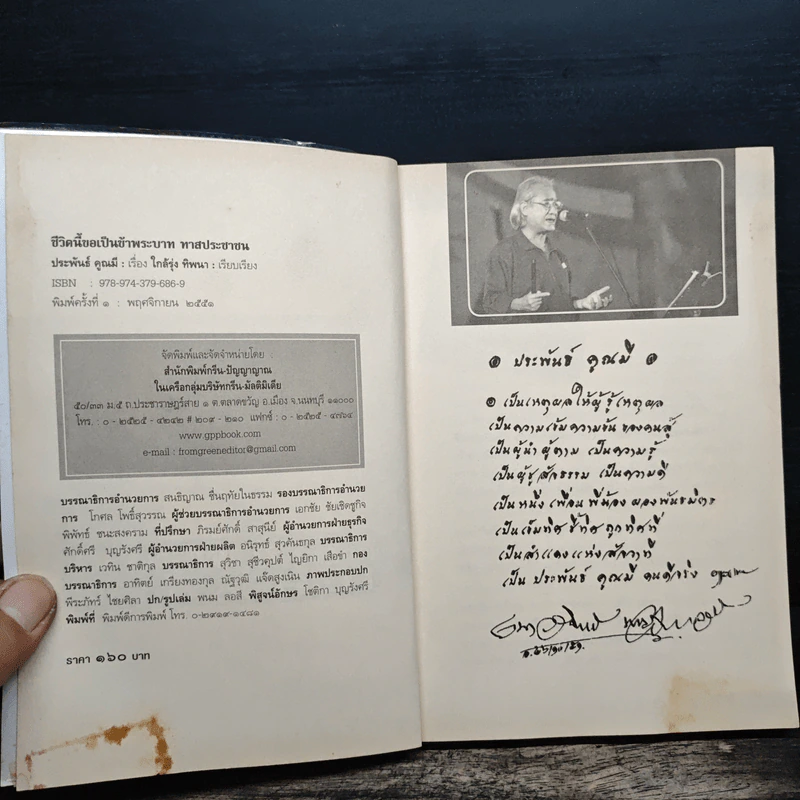 ชีวิตนี้ขอเป็นข้าพระบาท ทาสประชาชน
ประพันธ์ คูณมี : เรื่อง ใกล้รุ่ง ทิพนา : เรียบเรียง
ISBN : 978-974-379-686-9
พิมพ์ครั้งที่ ๑ : พฤศจิกายน ๒๕๕๑
จัดพิมพ์และจัดจำหน่ายโดย
สำนักพิมพ์กรีน-ปัญญาญาณ
ในเครือกลุ่มบริษัทกรีน-มัลติมีเดีย
๕๐/๓๓ ม.๕ ถ.ประชาราษฎร์สาย ๑ ต.ตลาดขวัญ อ.เมือง จ.นนทบุรี ๑๑๐๐๐
โทร. : ๐ - ๒๕๒๕ - ๔๒๔๒ # ๒๐๙ - ๒๑๐ แฟกซ์ : ๐ - ๒๕๒๕ - ๔๗๖๔
www.gppbook.com
e-mail : fromgreeneditor@gmail.com
บรรณาธิการอำนวยการ สนธิญาณ ชื่นฤทัยในธรรม รองบรรณาธิการอำนวย
การ โกศล โพธิ์สุวรรณ ผู้ช่วยบรรณาธิการอำนวยการ เอกชัย ชัยเชิดชูกิจ
พิพัทธ์ ชนะสงคราม ที่ปรึกษา ภิรมย์ศักดิ์ สาสุนีย์ ผู้อำนวยการฝ่ายธุรกิจ
ศักดิ์ศรี บุญรังศรี ผู้อำนวยการฝ่ายผลิต อนิรุทธ์ สุวคันธกุล บรรณาธิการ
บริหาร เวทิน ชาติกุล บรรณาธิการ สุวิชา สุชีวคุปต์ ไญยิกา เสือขำ กอง
บรรณาธิการ อาทิตย์ เกรียงทองกุล ณัฐวุฒิ แจ๊ดสูงเนิน ภาพประกอบปก
พีระภัทร์ ไชยศิลา ปก/รูปเล่ม พนม ลอสี พิสูจน์อักษร โชติกา บุญรังศรี
พิมพ์ที่ พิมพ์ดีการพิมพ์ โทร. ๐-๒๙๑๙-๑๔๘๑
ราคา ๑๖๐ บาท
๏ ประพันธ์ คูณมี ๏
๏ เป็นเหตุผล ให้ผู้รู้เหตุผล
เป็นความเข้มความข้น ของคนสู้
เป็นผู้นำ ผู้ตาม เป็นความรู้
เป็นผู้ชูสัจธรรม เป็นความดี
เป็นหนึ่ง เพื่อน พี่น้อง ผองพันธมิตร
เป็นเข็มทิศ ชี้ทิศ ถูกทิศที่
เป็นสำแดงแห่งสัจวาที
เป็น ประพันธ์ คูณมี คนดีจริง